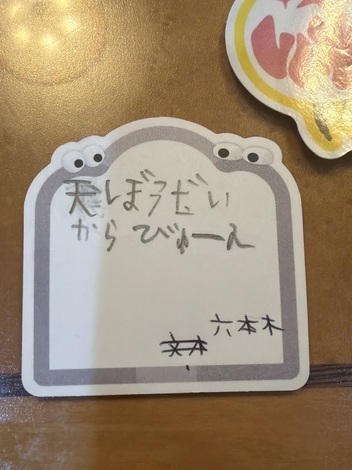 天ぼうだい
からびゅーん
六本木